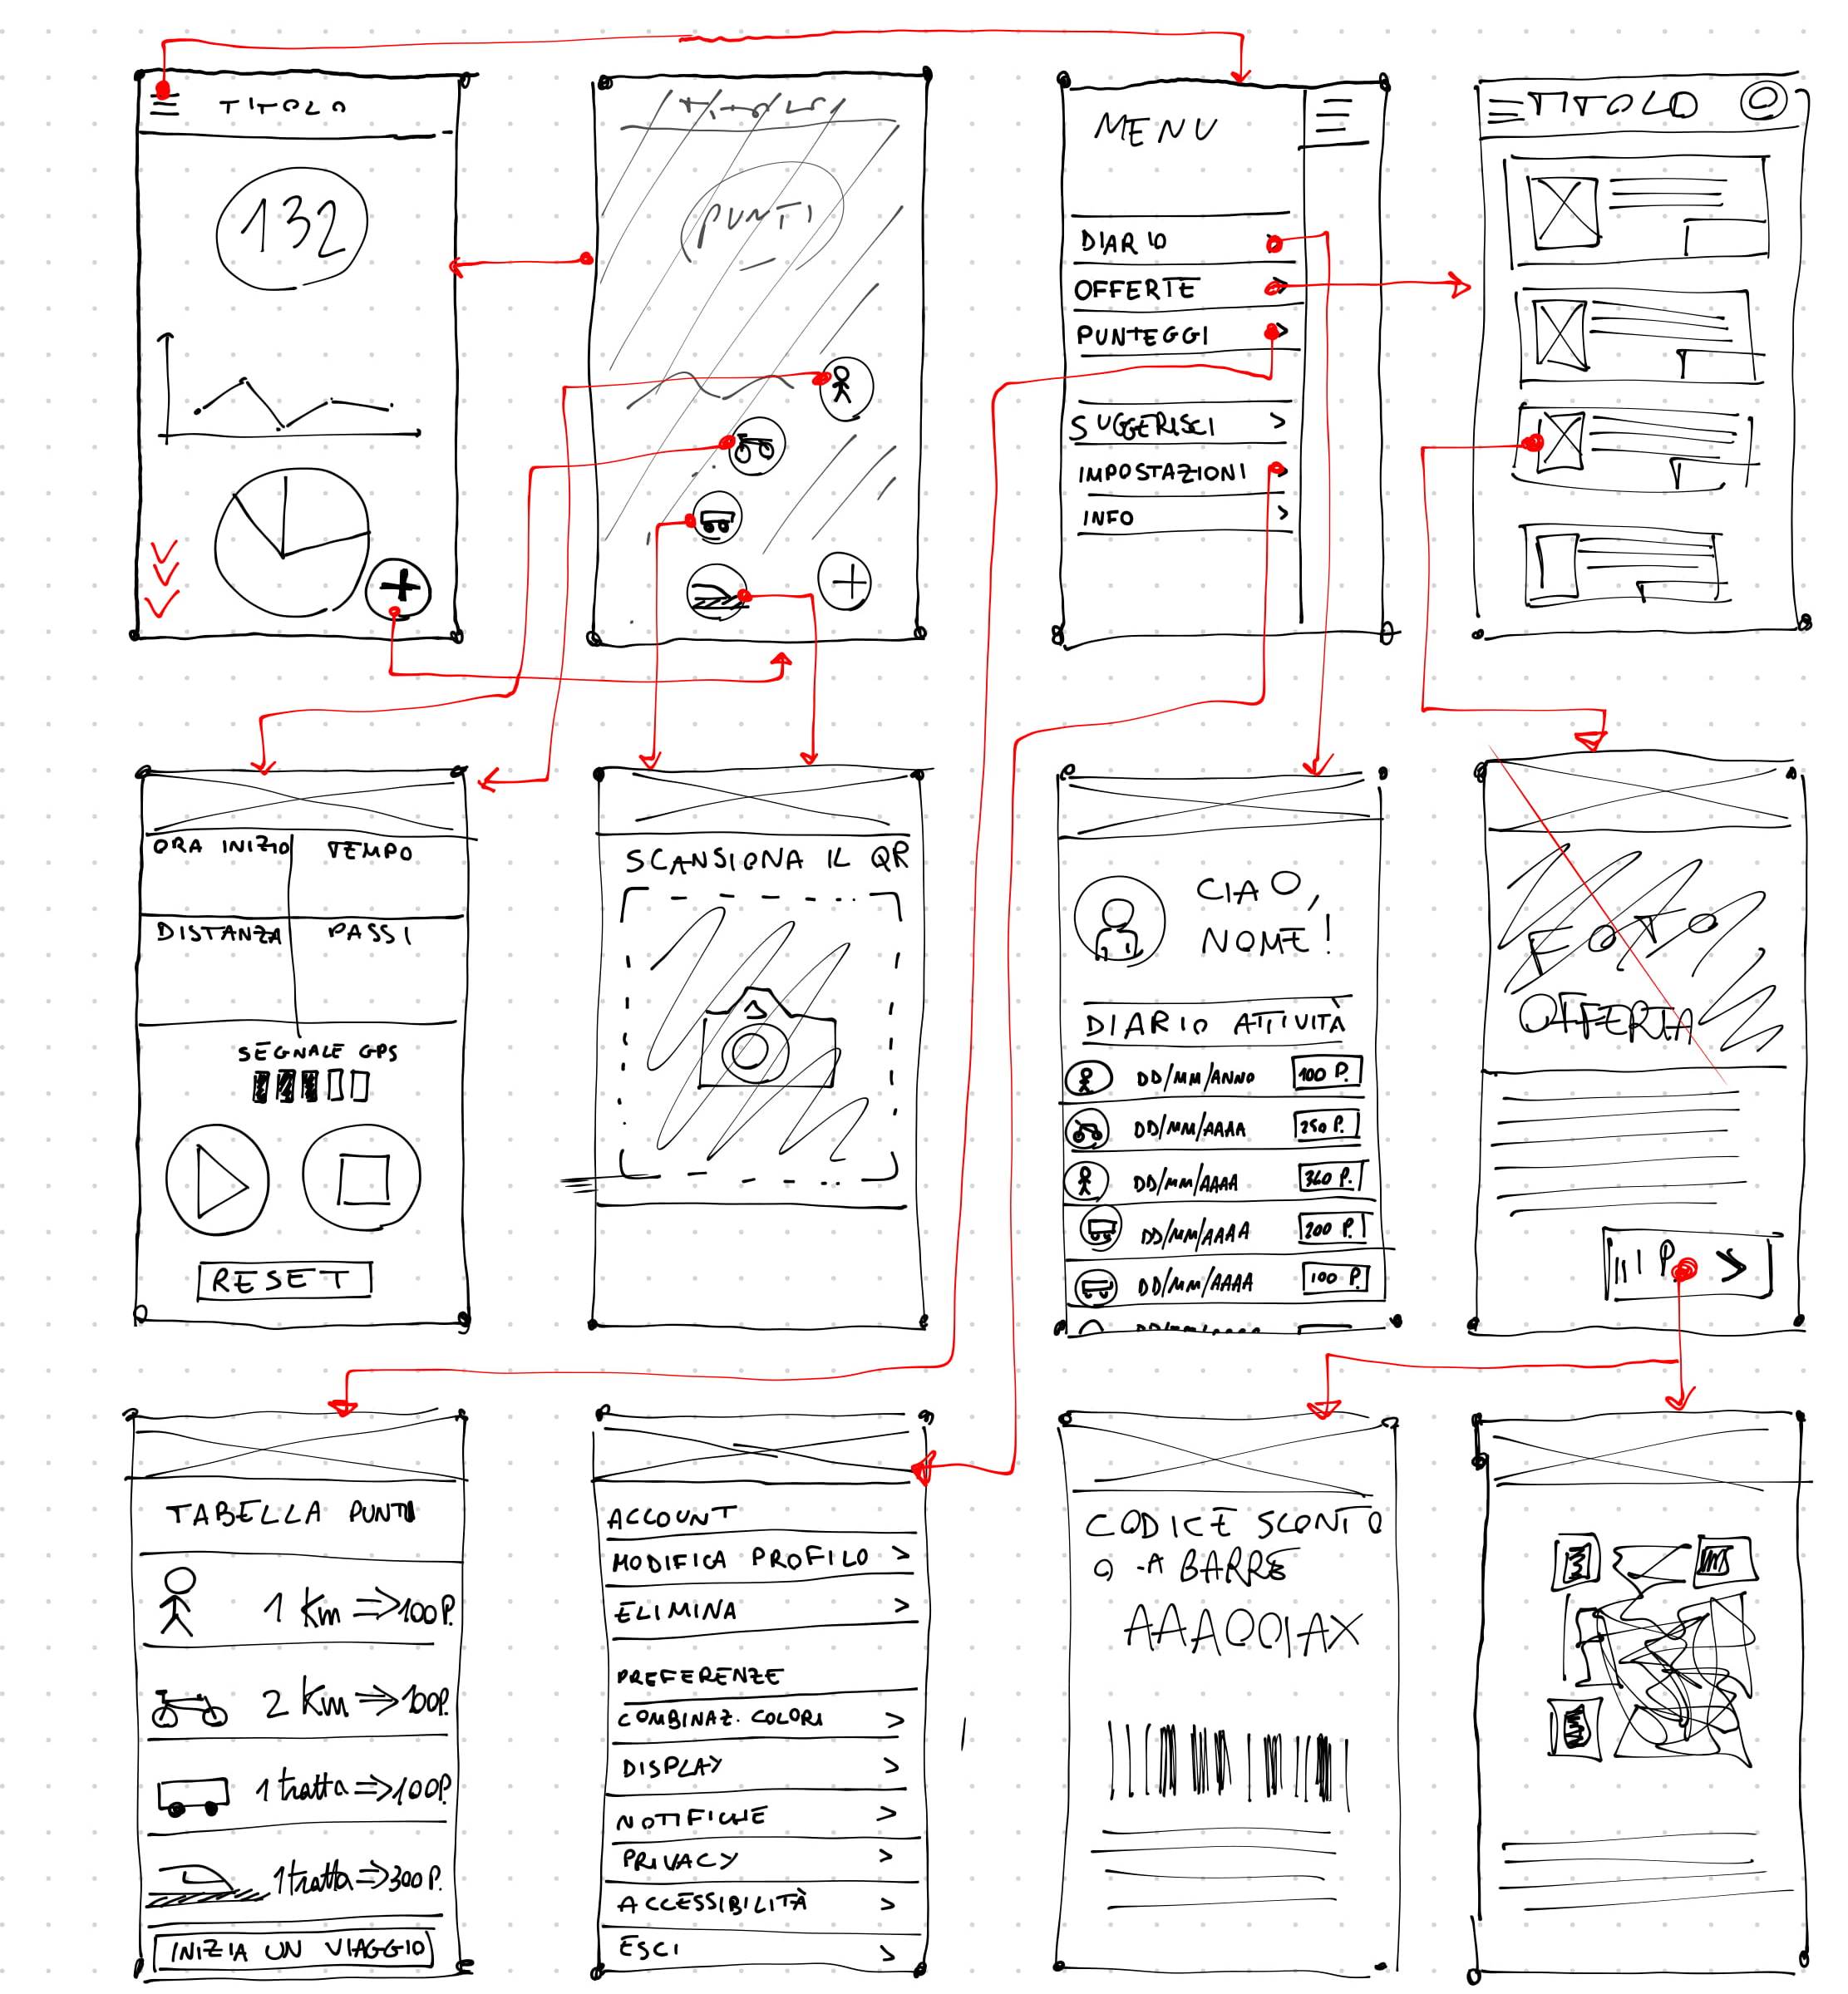 TITOLO
132
PUNTI
MENU
DIARIO
OFFERTE
PUNTEGGI
SUGGERISCI
IMPOSTAZIONI
INFO
TITOLO
ORA INIZIO
TEMPO
DISTANZA
PASSI
SEGNALE GPS
RESET
SCANSIONA IL QR
CIAO,
NOME!
DIARIO ATTIVITÀ
DD/MM/ANNO 100 P.
DD/MM/AAAA 250 P.
DD/MM/AAAA 360 P.
DD/MM/AAAA 200 P.
DD/MM/AAAA 100 P.
FOTO
OFFERTA
TABELLA PUNTI
1 Km => 100 P.
2 Km => 100 P.
1 tratta => 100 P.
1 tratta => 300 P.
INIZIA UN VIAGGIO
ACCOUNT
MODIFICA PROFILO >
ELIMINA >
PREFERENZE
COMBINAZ. COLORI >
DISPLAY >
NOTIFICHE >
PRIVACY >
ACCESSIBILITÀ >
ESCI >
CODICE SCONTO
O -A BARRE
AAA001AX